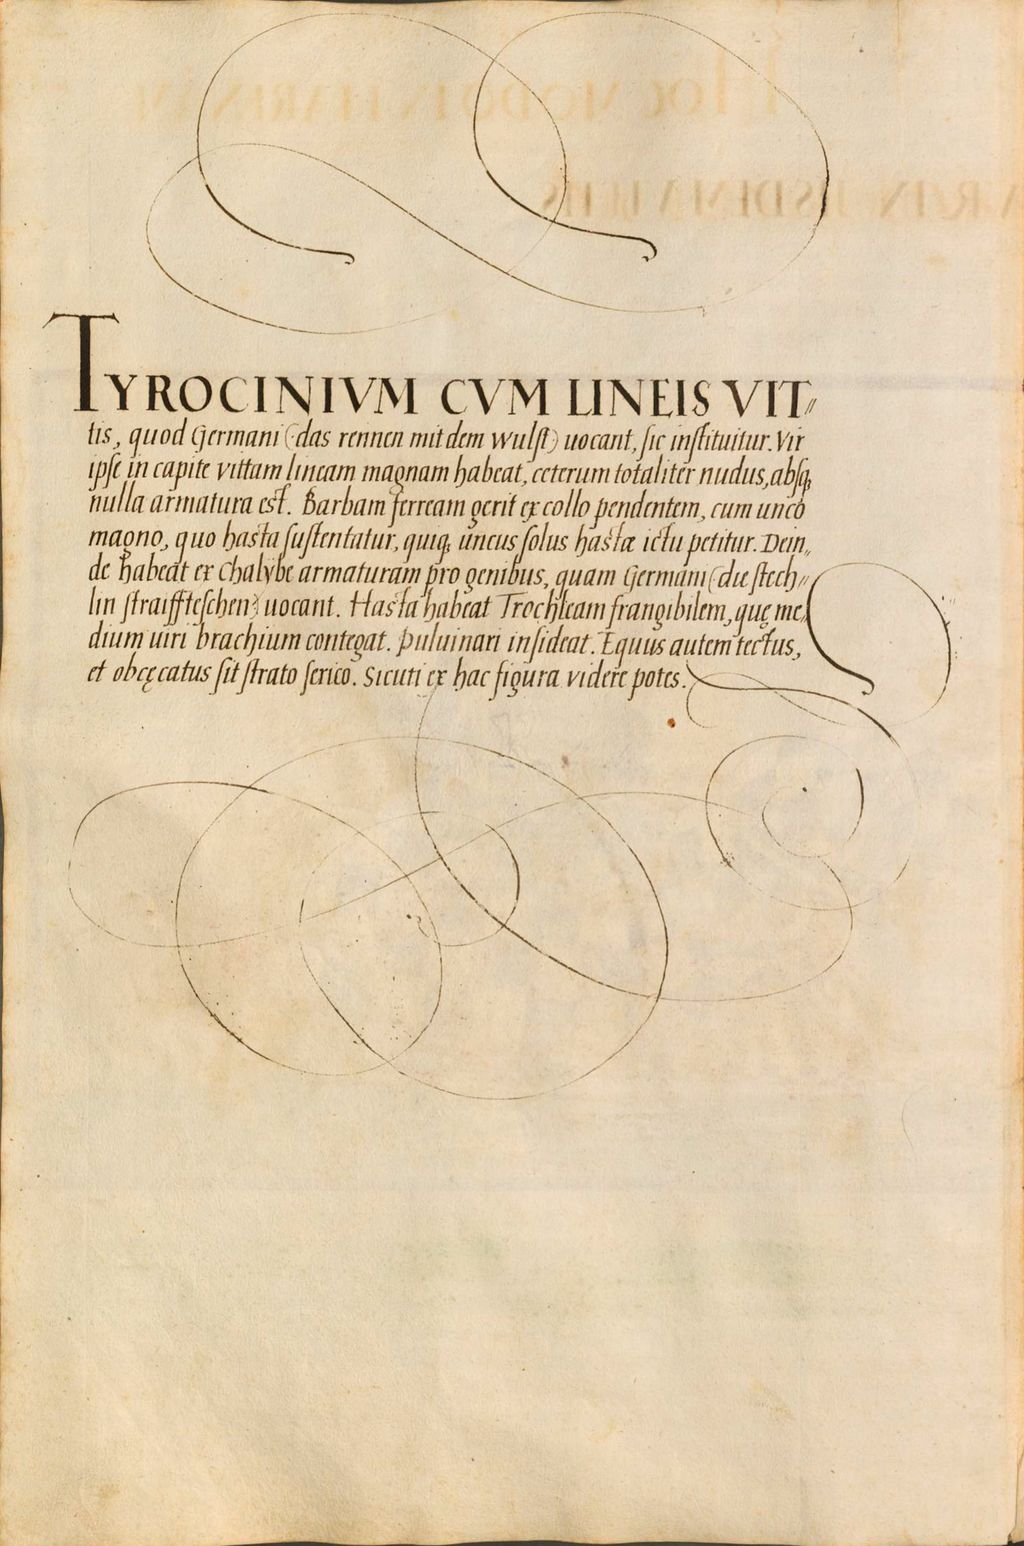 TYROCINIVM CVM LINEIS VIT〃
tis, quod Germani (:das rennen mit dem wulst:) uocant, sic instituitur. Vir
ipse in capite vittam lineam magnam habeat, ceterum totaliter nudus, absq;
nulla armatura est. Barbam ferream gerit ex collo pendentem, cum unco
magno, quo hasta sustentatur, quiq; uncus solus hastæ ictu petitur. Dein〃
de habeat ex Chalybe armaturam pro genibus, quam Germani (:die stech〃
lin straiffteschen:) uocant. Hasta habeat Trochleam frangibilem, quę me〃
dium uiri brachium contegat. Puluinari insideat. Equus autem tectus,
et obcęcatus sit strato serico. Sicuti ex hac figura videre potes.